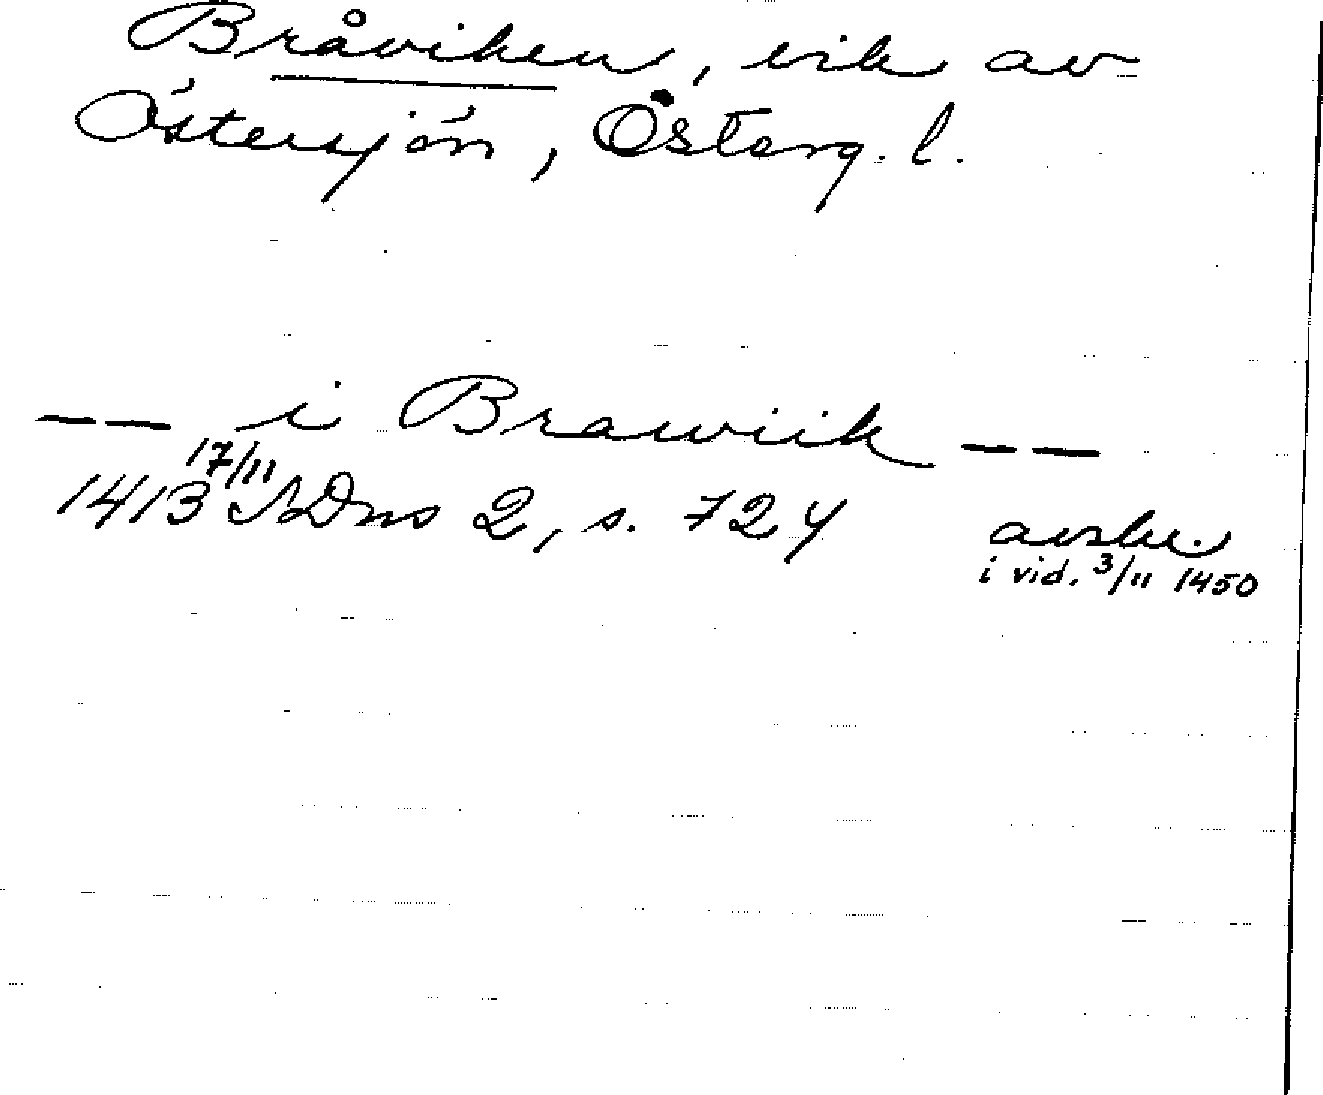 Bråviken, vik av
Östersjön, Österg. l.
— — i Brawiik — —
1413 17/11 SDns 2, s. 724 avskr.
i vid. 3/11 1450